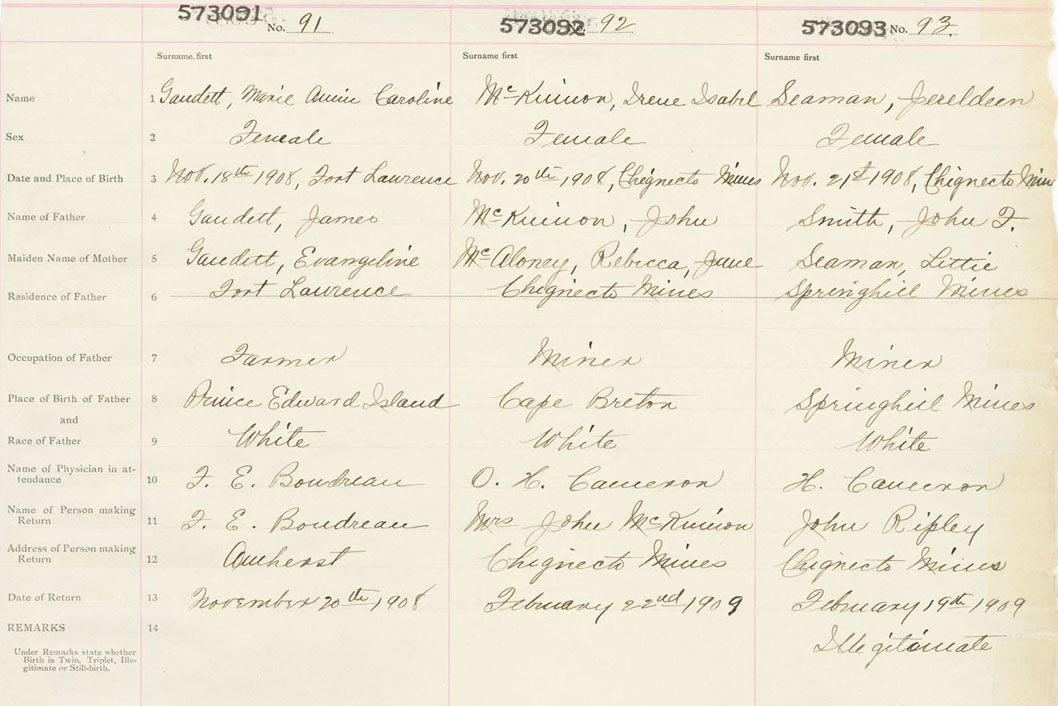 573091 No. 91 573092 92 573093 No. 93.
Surname first Surname first Surname first
Name 1 Gaudett, Marie Annie Caroline McKinnon, Irene Isabel Seaman, Jereldeen
Sex 2 Female Female Female
Date and Place of Birth 3 Nov. 18th 1908, Fort Lawrence Nov. 20th 1908, Chignecto Mines Nov. 21st 1908, Chignecto Mines
Name of Father 4 Gaudett, James McKinnon, John Smith, John F.
Maiden Name of Mother 5 Gaudett, Evangeline McAloney, Rebecca, June Seaman, Lottie
Residence of Father 6 Fort Lawrence Chignecto Mines Springhill Mines
Occupation of Father 7 Farmer Miner Miner
Place of Birth of Father 8 Prince Edward Island Cape Breton Springhill Mines
and
Race of Father 9 White White White
Name of Physician in at-
tendance 10 F. E. Boudreau O. H. Cameron H. Cameron
Name of Person making
Return 11 F. E. Boudreau Mrs John McKinnon John Ripley
Address of Person making
Return 12 Amherst Chignecto Mines Chignecto Mines
Date of Return 13 November 20th 1908 February 22nd 1909 February 19th 1909
REMARKS 14 Illegitimate
Under Remarks state whether
Birth is Twin, Triplet, Ille-
gitimate or Still-birth.